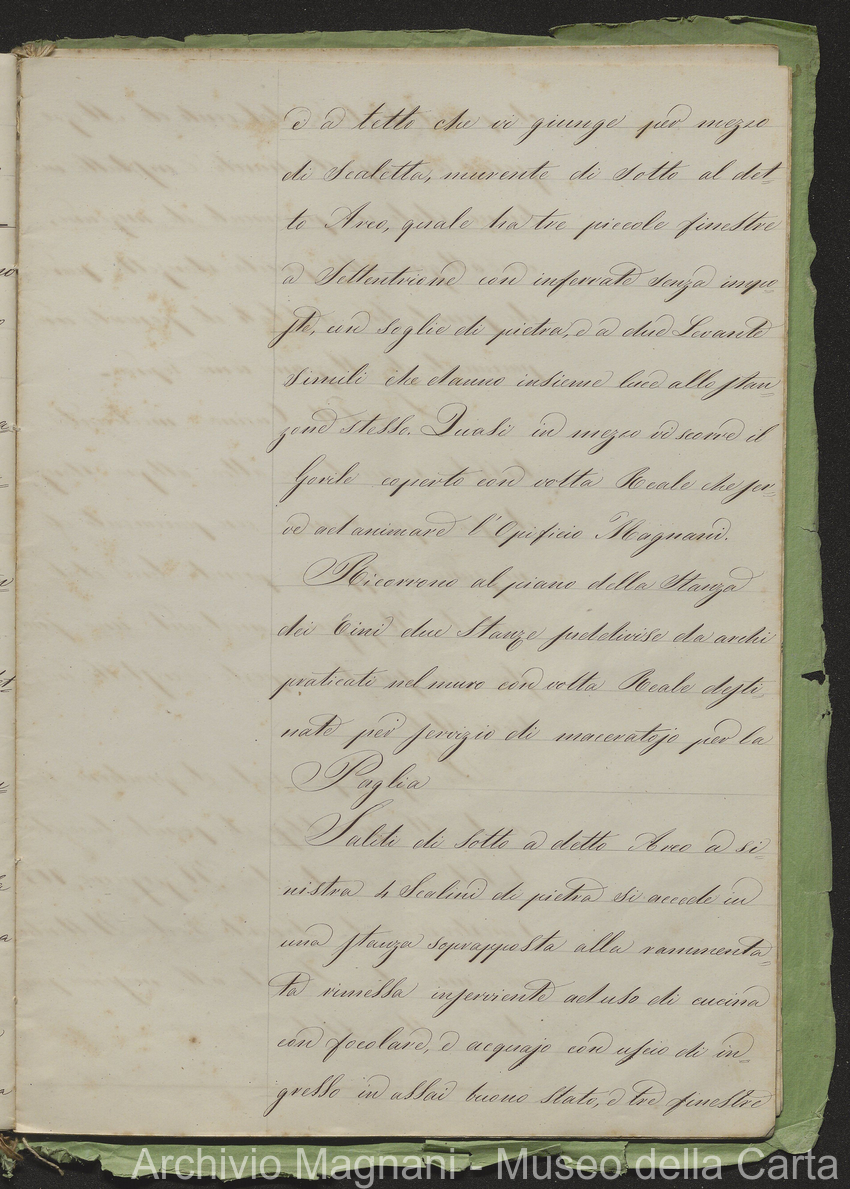 e a tetto che vi giunge per mezzo
di Scaletta, murente di sotto al det=
to Arco, quale ha tre piccole finestre
a Settentrione con inferrate senza impo=
ste, con soglie di pietra, e a due Levante
simili che danno insieme luce allo stan=
zone stesso. Quasi in mezzo vi scorre il
Gorile coperto con volta Reale che ser=
ve ad animare l'Opificio Magnani.
Ricorrono al piano della Stanza
dei Tini due Stanze suddivise da archi
praticati nel muro con volta Reale desti=
nate per servizio di maceratojo per la
Paglia
Saliti di sotto a detto Arco a si=
nistra 4 Scalini di pietra si accede in
una stanza soprapposta alla rammenta=
ta rimessa inserviente ad uso di cucina
con focolare, e acquajo con uscio di in=
gresso in assai buono stato, e tre finestre
Archivio Magnani - Museo della Carta